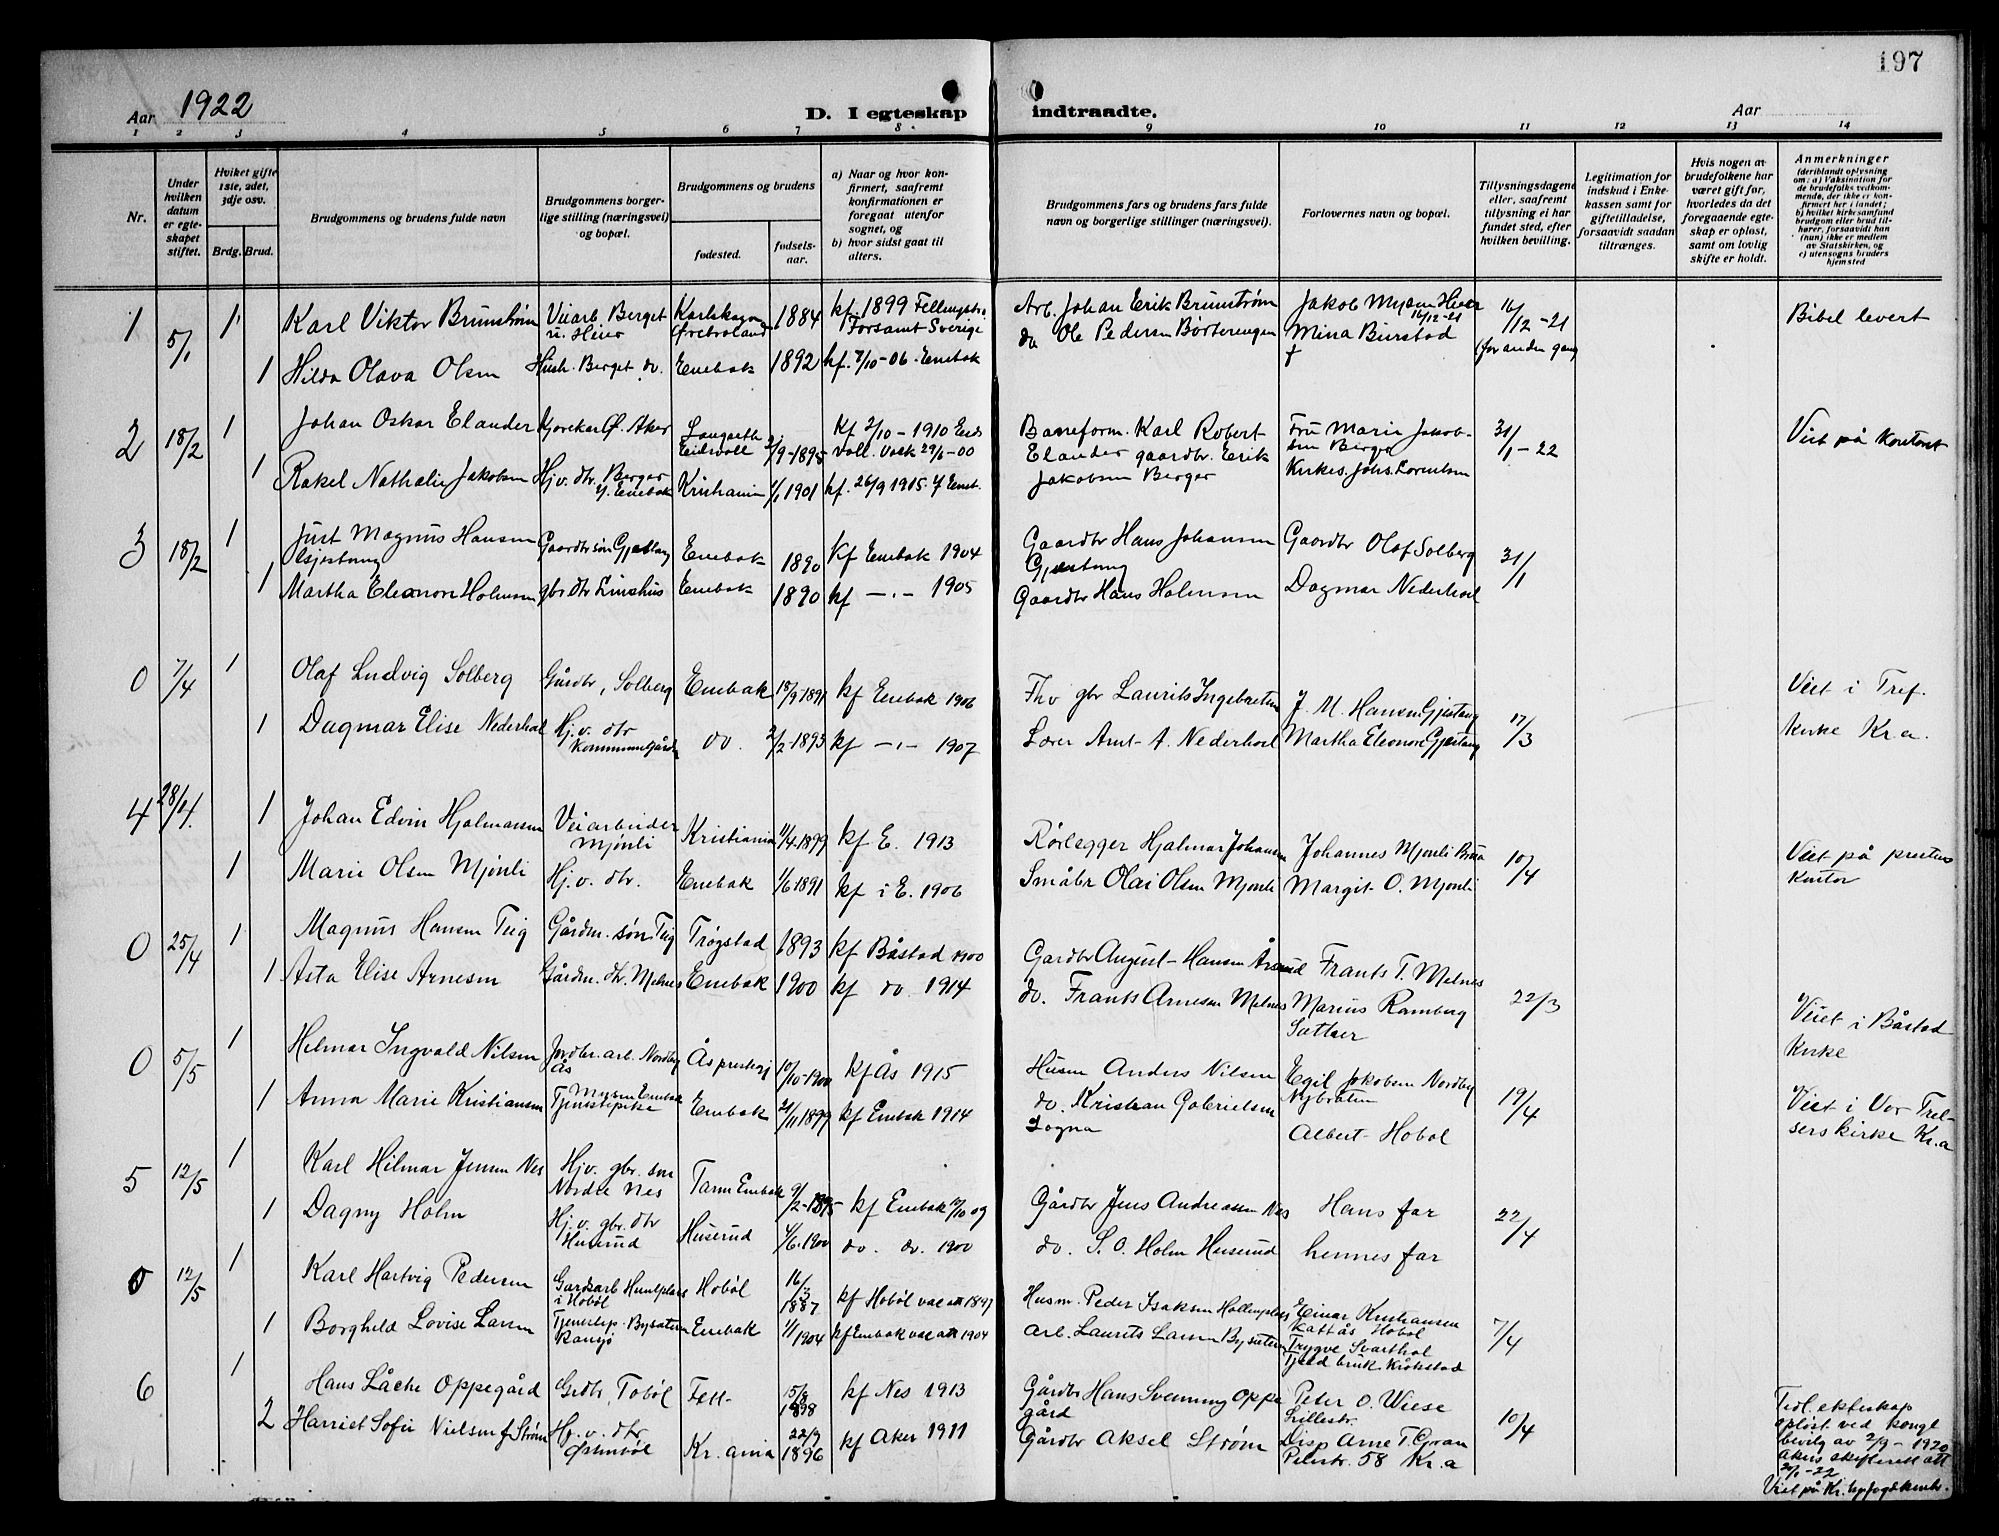 197
Aar 1922
D. I egteskap indtraadte.
Aar
1 2 3 4 5 6 7 8 9 10 11 12 13 14
Nr.
Under hvilken datum er egteskapet stiftet.
Hviket gifte 1ste, 2det, 3dje osv.
Brdg. Brud.
Brudgommens og brudens fulde navn
Brudgommens borgerlige stilling (næringsvei) og bopæl.
Brudgommens og brudens
fødested.
fødselsaar.
a) Naar og hvor konfirmert, saafremt konfirmationen er foregaat utenfor sognet, og
b) hvor sidst gaat til alters.
Brudgommens fars og brudens fars fulde navn og borgerlige stillinger (næringsvei).
Forlovernes navn og bopæl.
Tillysningsdagene eller, saafremt tillysning ei har fundet sted, efter hvilken bevilling.
Legitimation for indskud i Enkekassen samt for giftetilladelse, forsaavidt saadan tiltrænges.
Hvis nogen av brudefolkene har været gift før, hvorledes da det foregaaende egteskap er opløst, samt om lovlig skifte er holdt.
Anmerkninger
(deriblandt oplysning om: a) Vaksination for de brudefolks vedkommende, der ikke er konfirmert her i landet;
b) hvilket kirkesamfund brudgom eller brud tilhører, forsaavidt han (hun) ikke er medlem av Statskirken, og
c) utensogns bruders hjemsted
1 5/1 1 Karl Viktor Brunstrøm Veiarb Berget u. Heier Karlskoga Ørebroland 1884 kf. 1899 Fellingsbro Forsamt Sverige Arb. Johan Erik Brunstrøm Jakob Mysen Heier 16/12-21 16/12-21 Bibel levert
1 Hilda Olava Olsen Hush. Berget do. Enebak 1892 kf. 7/10-06 Enebak do Ole Pedersen Børterengen Mina Burstad (for anden gang
2 18/2 1 Johan Oskar Elander Kjørekar Ø. Aker Eidsvoll 2/9-1895 Kf 2/10-1910 Eidsvoll. Vak 29/6-00 Baneform. Karl Robert Elander Fru Marie Jakobsen Berger 31/1-22 Viet på kontoret
1 Rakel Nathalie Jakobsen Hj. v. dtr. Berger y. Enebak Kristiania 1/1 1901 kf. 26/9 1915 y Eneb. gaardbr. Erik Jakobsen Berger Kirkes. Johs. Lorentsen
3 18/2 1 Just Magnus Hansen Gjestang Gaardbr søn Gjestang Enebak 1890 Kf Enebak 1904 Gaardbr Hans Johansen Gjestang Gaardbr Olaf Solberg 31/1
1 Martha Eleonore Holmsen gbr dtr Linshus Enebak 1890 kf -"- 1905 Gaardbr Hans Holmsen Dagmar Nederhoel
0 7/4 1 Olaf Ludvig Solberg Gårdbr, Solberg Enebak 18/9-1891 kf Enebak 1906 Fhv gbr Laurits Ingebretsen J. M. Hansen Gjestang 17/3 Viet i Tref. kirke Kr.a.
1 Dagmar Elise Nederhoel Hj. v. dtr Kommunegården do. 2/2-1893 kf -"- 1907 Lærer Arnt A. Nederhoel Martha Eleonore Gjestang
4 28/4. 1 Johan Edvin Hjalmarsen Veiarbeider Mjønli Kristiania 11/4-1899 kf E. 1913 Rørlegger Hjalmar Johansen Johannes Mjønli Braa 10/4 Viet på prestens kontor
1 Marie Olsen Mjønli Hj. v. dtr. Enebak 1/6-1891 kf i E. 1906 Småbr Olai Olsen Mjønli Margit O. Mjønli
0 25/4 1 Magnus Hansen Teig Gårdm. søn Teig Trøgstad 1893 kf Båstad 1900 Gardbr August Hansen Frants T. Melnes 22/3 Viet i Båstad kirke
1 Asta Elise Arnesen Gårdm. dtr. Melnes Enebak 1900 kf do. 1914 do. Frants Arnesen Melnes Marius Ramberg
0 5/5 1 Hilmar Ingvald Nilsen Jordbr. arb. Nordby Ås Ås prestegj 10/10-1900 kf Ås 1915 Husm Anders Nilsen Egil Jakobsen Nordby Nybråten 19/4 Viet i Vor Frelsers kirke Kr.a
1 Anna Marie Kristiansen Mysen Enebak Tjenestepike Enebak 21/11 1899 kf Enebak 1914 do. Kristian Gabrielsen Sogna Albert Hobøl
5 12/5 1 Karl Hilmar Jensen Nes Hj. v. gbr. søn Nordre Nes Tarm Enebak 9/2-1895 kf Enebak 12/10 09 Gårdbr Jens Andreassen Nes Hans far 22/4
1 Dagny Holm Hj. v. gbr. dtr Huserud Huserud 4/6-1900 do. do. 1900 do. S. O. Holm Huserud hennes far
0 12/5 1 Karl Hartvig Pedersen Gardsarb Humlplass i Hobøl Hobøl 16/3 1887 kf Hobøl vac att 1897 Husm. Peder Isaksen Hollenplass Einar Kristiansen Kattås Hobøl 7/4
1 Borghild Lovise Larsen Tjenestep. Bysæteren Enebak 1/1 1904 kf Enebak vac att 1904 arb. Laurits Larsen Bysæteren Trygve Svarthol Tjeld bruk Kråkstad
6 1 Hans Låche Oppegård Grdbr, Tobøl Fett 15/8 1898 kf Nes 1913 Gårdbr Hans Svenning Oppegård Peter O. Wiese Lillestr. 10/4
2 Harriet Sofie Nielsen f Strøm Hj. v. dtr Østensbøl Kr. ania 22/9 1896 kf Aker 1911 Gårdbr Aksel Strøm Disp Arne T. Gran Pilestr. 58 Kr.a
Tidl. ekteskap opløst ved kongl bevilg av 2/9-1920 Akers skifterett att 20/1-22 Viet på Kr. byfogdkontr.